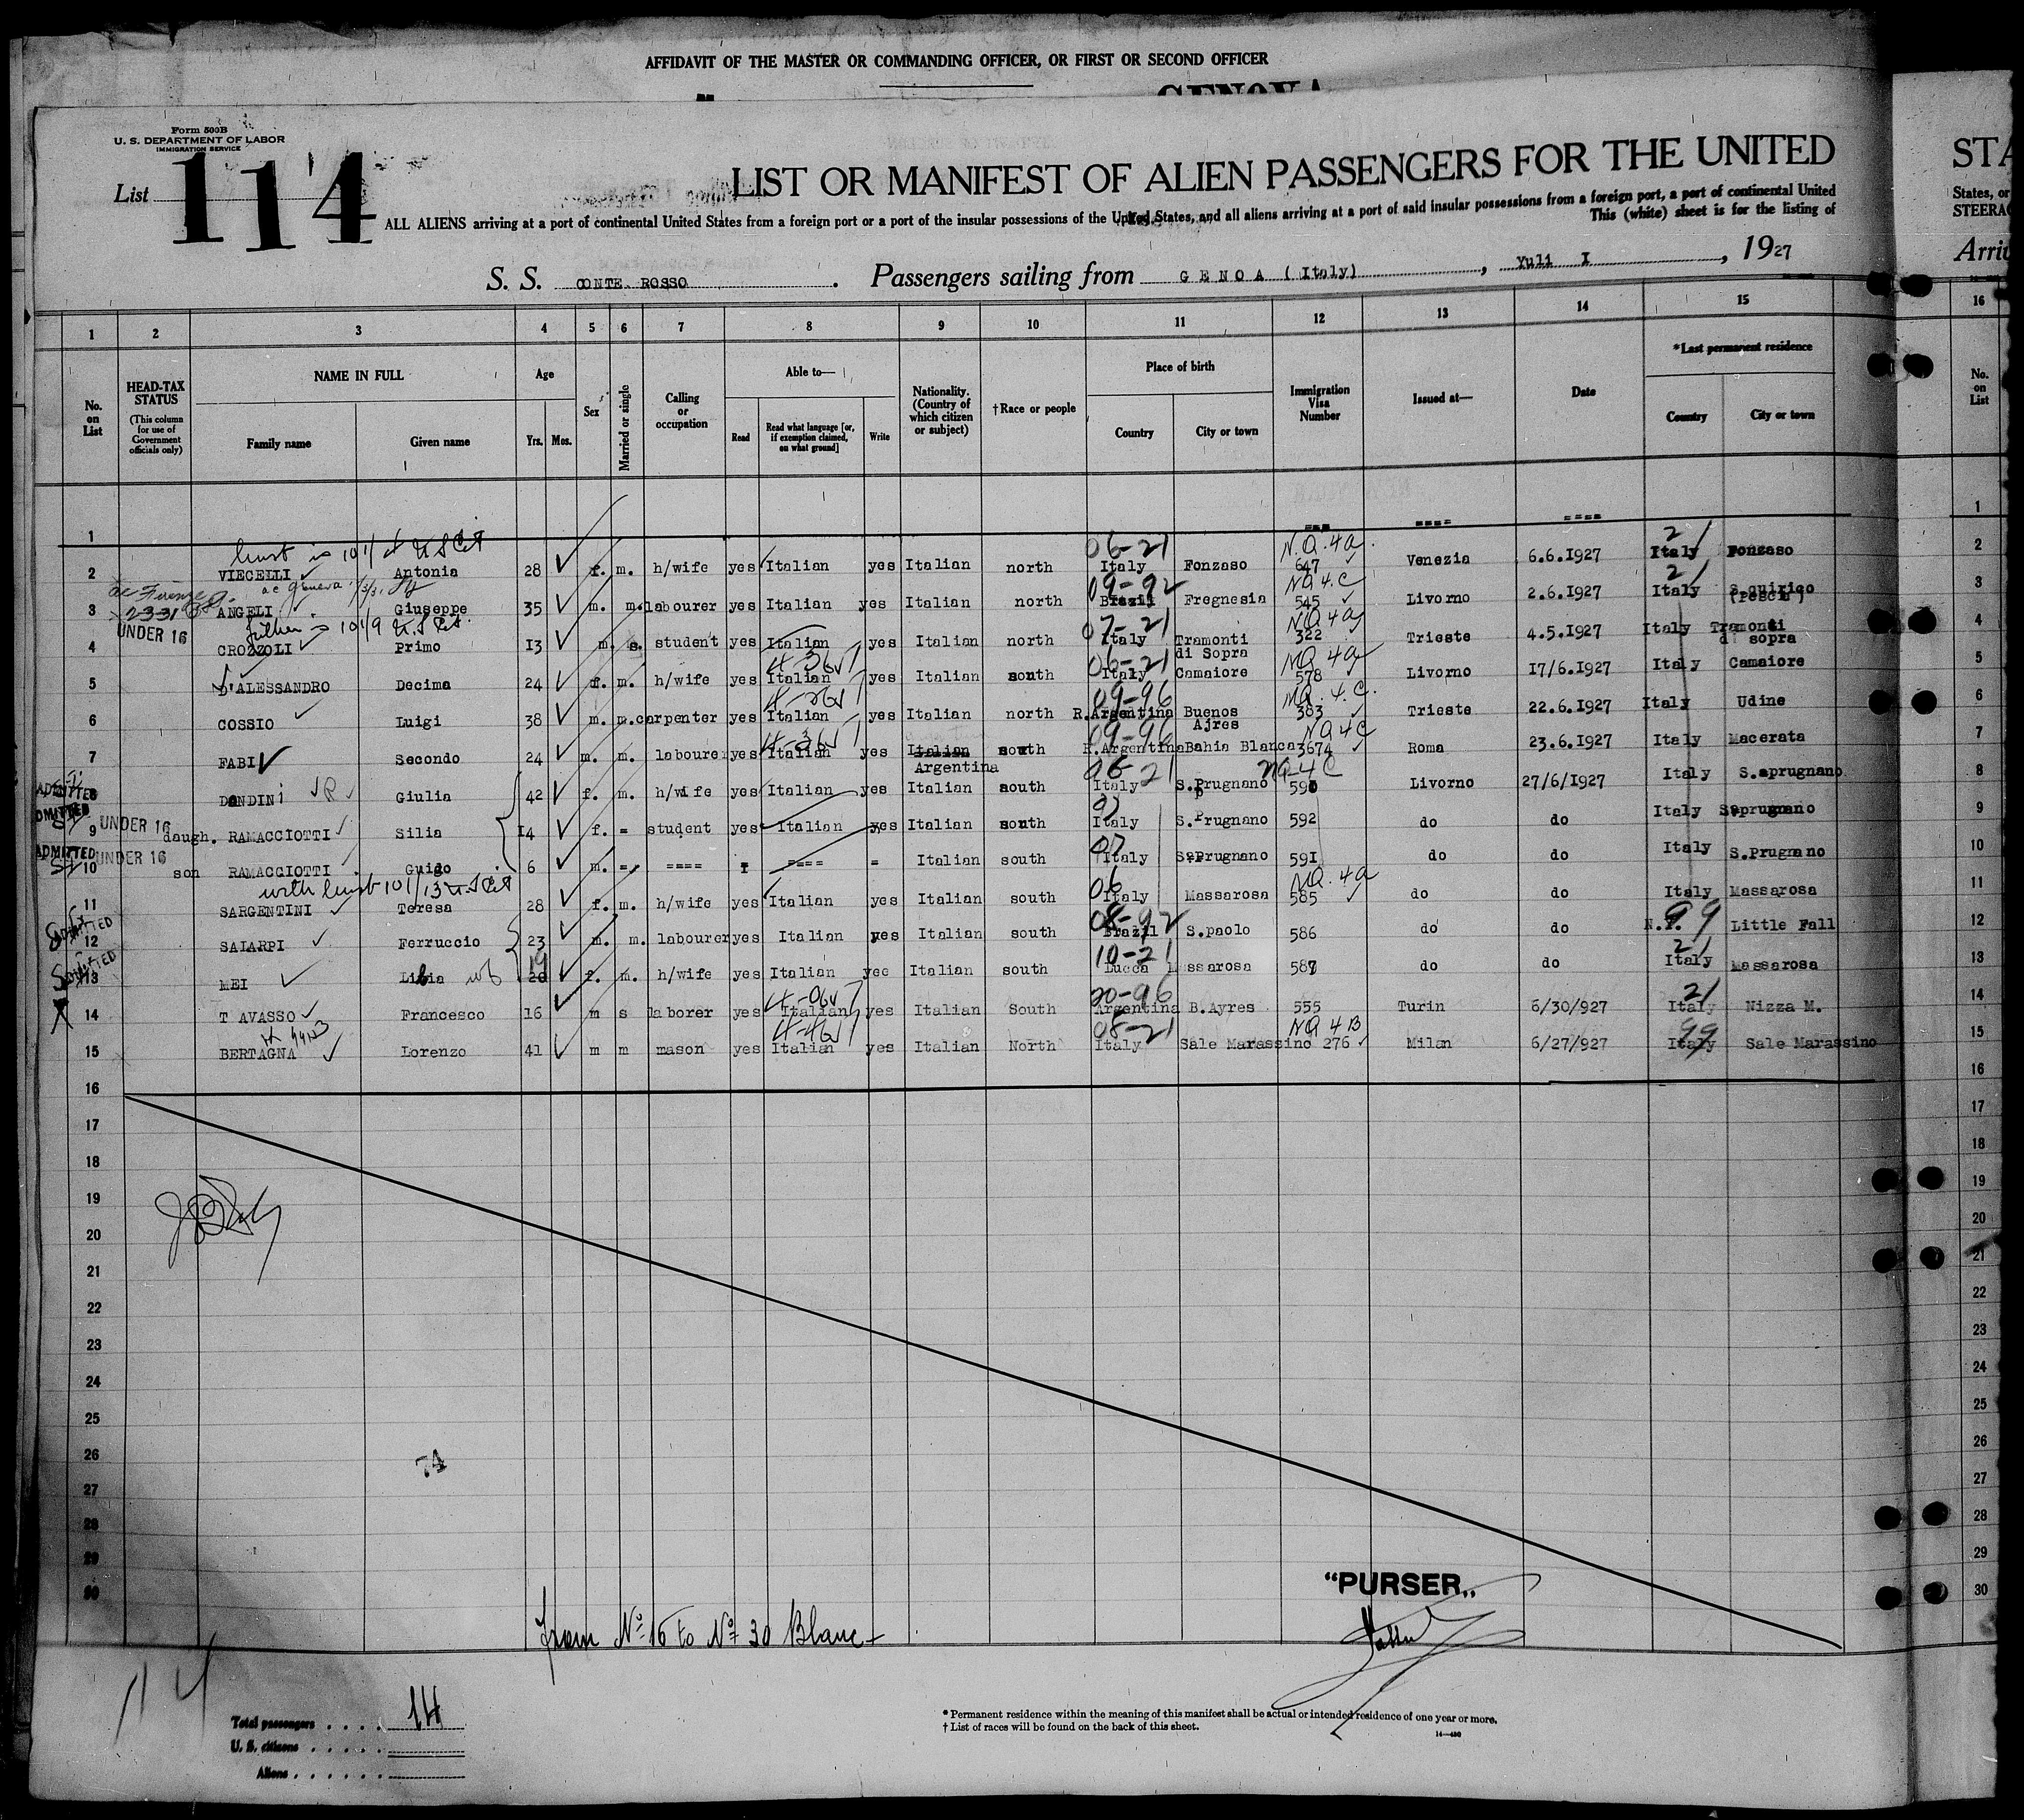 AFFIDAVIT OF THE MASTER OR COMMANDING OFFICER, OR FIRST OR SECOND OFFICER
GENOVA
Form 500B
U. S. DEPARTMENT OF LABOR
IMMIGRATION SERVICE
List 114
LIST OR MANIFEST OF ALIEN PASSENGERS FOR THE UNITED
ALL ALIENS arriving at a port of continental United States from a foreign port or a port of the insular possessions of the United States, and all aliens arriving at a port of said insular possessions from a foreign port, a port of continental United
This (white) sheet is for the listing of
STA
States, or
STEERAG
S. S. CONTE ROSSO. Passengers sailing from GENOA (Italy), Yuli I, 1927
Arriv
1 2 3 4 5 6 7 8 9 10 11 12 13 14 15 16
No. on List
HEAD-TAX STATUS (This column for use of Government officials only)
NAME IN FULL Family name Given name
Age Yrs. Mos.
Sex
Married or single
Calling or occupation
Able to— Read Read what language [or, if exemption claimed, on what ground] Write
Nationality. (Country of which citizen or subject)
†Race or people
Place of birth Country City or town
Immigration Visa Number
Issued at—
Date
*Last permanent residence Country City or town
No. on List
1 --- ---- ---- 1
husb is 101/ U S Cit 06-21 N.Q.4a. 2
2 VIECELLI Antonia 28 f. m. h/wife yes Italian yes Italian north Italy Fonzaso 647 Venezia 6.6.1927 Italy Fonzaso 2
ac Geneva 09-92 NQ 4.C 2
3 2-3-31 ANGELI Giuseppe 35 m. m. labourer yes Italian yes Italian north Brazil Fregnesia 545 Livorno 2.6.1927 Italy S.quirico (Pescia) 3
UNDER 16 father is 101/9 U.S Cit. 07-21 NQ 4a
4 CROZZOLI Primo 13 m. s. student yes Italian yes Italian north Italy Tramonti di Sopra 322 Trieste 4.5.1927 Italy Tramonti di sopra 4
06-21 NQ 4a
5 D'ALESSANDRO Decima 24 f. m. h/wife yes Italian yes Italian south Italy Camaiore 578 Livorno 17/6.1927 Italy Camaiore 5
09-96 NQ.4.C.
6 COSSIO Luigi 38 m. m. carpenter yes Italian yes Italian north R.Argentina Buenos Ajres 383 Trieste 22.6.1927 Italy Udine 6
09-96 NQ 4C
7 FABI Secondo 24 m. m. labourer yes Italian yes Italian Argentina south R.Argentina Bahia Blanca 3674 Roma 23.6.1927 Italy Macerata 7
ADMITTED 06-21 NQ-4C
8 DONDINI Giulia 42 f. m. h/wife yes Italian yes Italian south Italy S.Prugnano 590 Livorno 27/6/1927 Italy S.aprugnano 8
ADMITTED 07
9 UNDER 16 daugh. RAMACCIOTTI Silia 14 f. = student yes Italian yes Italian south Italy S.Prugnano 592 do do Italy S.prugnano 9
ADMITTED 07
10 UNDER 16 son RAMACCIOTTI Guido 6 m. = ==== = ==== = Italian south Italy S.Prugnano 591 do do Italy S.Prugnano 10
with husb 101/13 U.S Cit 06 NQ.4a
11 SARGENTINI Teresa 28 f. m. h/wife yes Italian yes Italian south Italy Massarosa 585 do do Italy Massarosa 11
ADMITTED 08-92 99
12 SALARPI Ferruccio 23 m. m. labourer yes Italian yes Italian south Brazil S.paolo 586 do do N.Y. Little Fall 12
ADMITTED 19 10-21 21
13 MEI Libia 20 f. m. h/wife yes Italian yes Italian south Lucca Massarosa 587 do do Italy Massarosa 13
20-96 21
14 T AVASSO Francesco 16 m s laborer yes Italian yes Italian South Argentina B.Ayres 555 Turin 6/30/927 Italy Nizza M. 14
08-21 NQ 4B 99
15 BERTAGNA Lorenzo 41 m m mason yes Italian yes Italian North Italy Sale Marassino 276 Milan 6/27/927 Italy Sale Marassino 15
16 16
17 17
18 18
19 19
20 20
21 21
22 22
23 23
24 24
25 25
26 74 26
27 27
28 28
29 29
30 30
"PURSER„
From Nº 16 to Nº 30 Blanc
114
Total passengers . . . . 14
U. S. citizens . . . . .
Aliens . . . . . .
* Permanent residence within the meaning of this manifest shall be actual or intended residence of one year or more.
† List of races will be found on the back of this sheet.
14—430